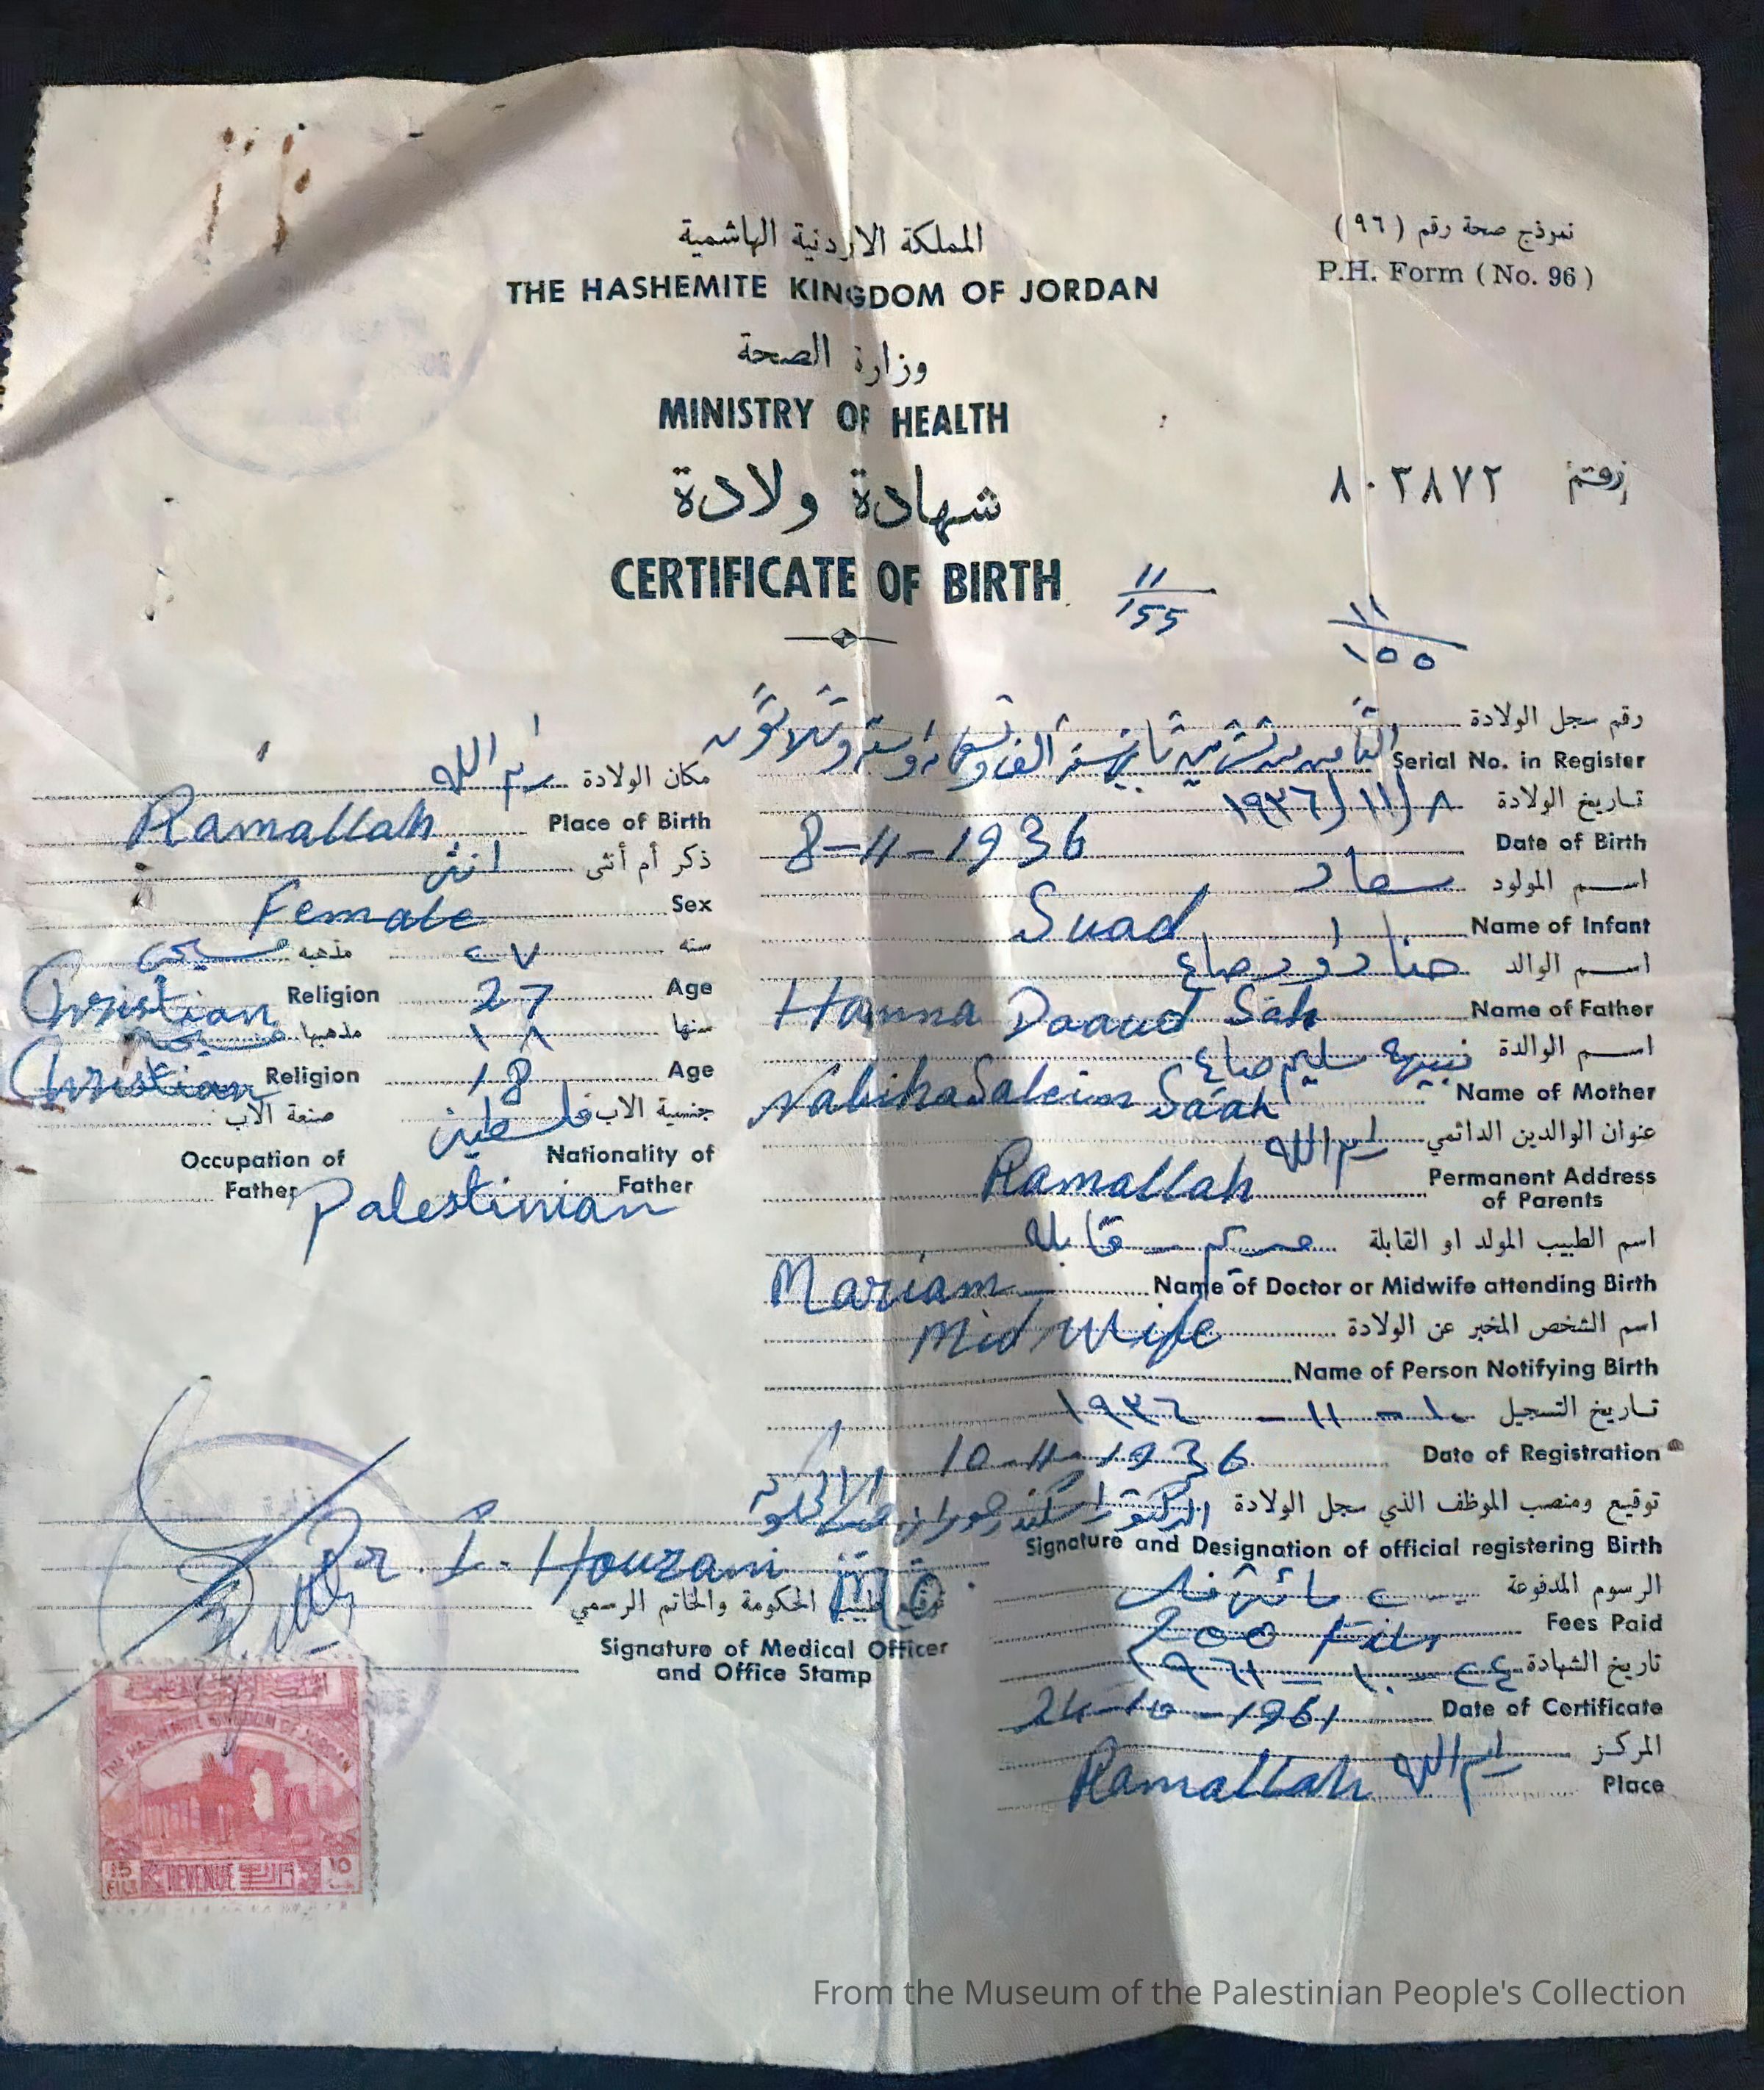 المملكة الاردنية الهاشمية
THE HASHEMITE KINGDOM OF JORDAN
نموذج صحة رقم (٩٦)
P.H. Form (No. 96)
وزارة الصحة
MINISTRY OF HEALTH
شهادة ولادة
رقم ٨٠٣٨٧٢
CERTIFICATE OF BIRTH
11/155
١١/١٥٥
رقم سجل الولادة
Serial No. in Register
الثامن من تشرين ثاني سنة الف وتسعماية وستة وثلاثون
تاريخ الولادة ٨/١١/١٩٣٦
Date of Birth 8-11-1936
اسم المولود سعاد
Name of Infant Suad
اسم الوالد حنا داود صاع
Name of Father Hanna Daaud Sah
اسم الوالدة نبيهه سليم صاع
Name of Mother Nabiha Saleim Sa'ah
عنوان الوالدين الدائمي رام الله
Permanent Address of Parents Ramallah
اسم الطبيب المولد او القابلة مريم - قابله
Name of Doctor or Midwife attending Birth Mariam
Midwife
اسم الشخص المخبر عن الولادة
Name of Person Notifying Birth
تاريخ التسجيل ١٠-١١-١٩٣٦
Date of Registration 10-11-1936
توقيع ومنصب الموظف الذي سجل الولادة الدكتور اسكندر حوراني
Signature and Designation of official registering Birth
Dr. I. Hourani
M.O.
الرسوم المدفوعة
Fees Paid 200 Fils
تاريخ الشهادة ٢٤-١٠-١٩٦١
Date of Certificate 24-10-1961
المركز رام الله
Place Ramallah
مكان الولادة رام الله
Place of Birth Ramallah
ذكر أم أنثى انثى
Sex Female
سنه ٢٧ مذهبه مسيحي
Age 27 Religion Christian
سنها ١٨ مذهبها مسيحيه
Age 18 Religion Christian
جنسية الاب فلسطيني صنعة الاب
Nationality of Father Palestinian
Occupation of Father
توقيع طبيب الحكومة والخاتم الرسمي
Signature of Medical Officer and Office Stamp
THE HASHEMITE KINGDOM OF JORDAN
15 FILS REVENUE
From the Museum of the Palestinian People's Collection